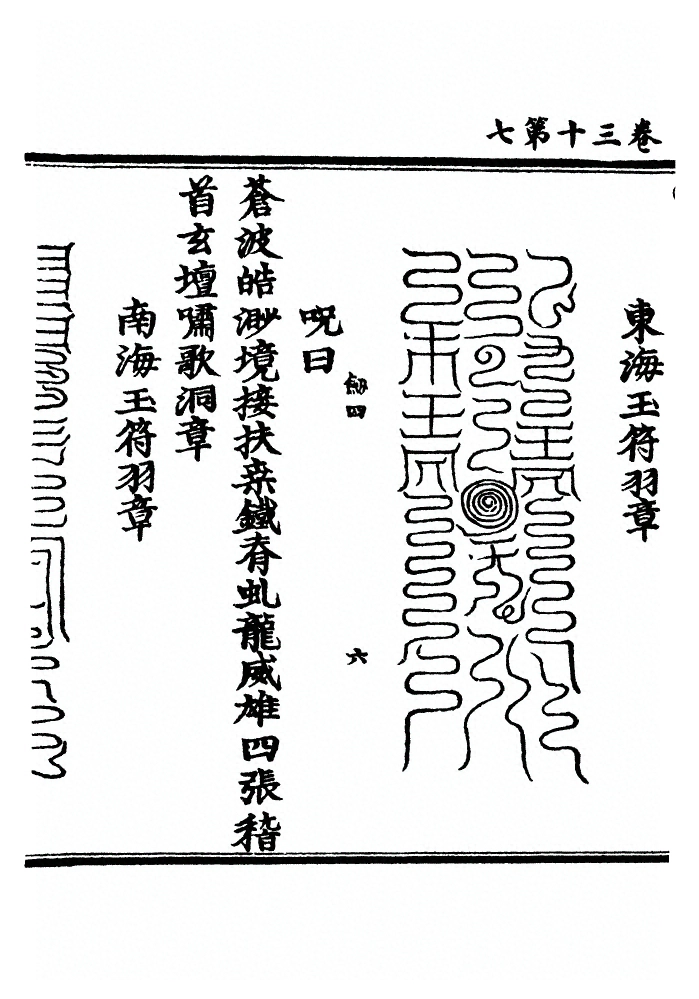 卷三十第七
東海玉符羽章
劔四
六
呪曰
蒼波皓渺境接扶桒鐵脊虬龍威雄四張稽
首玄壇嘯歌洞章
南海玉符羽章